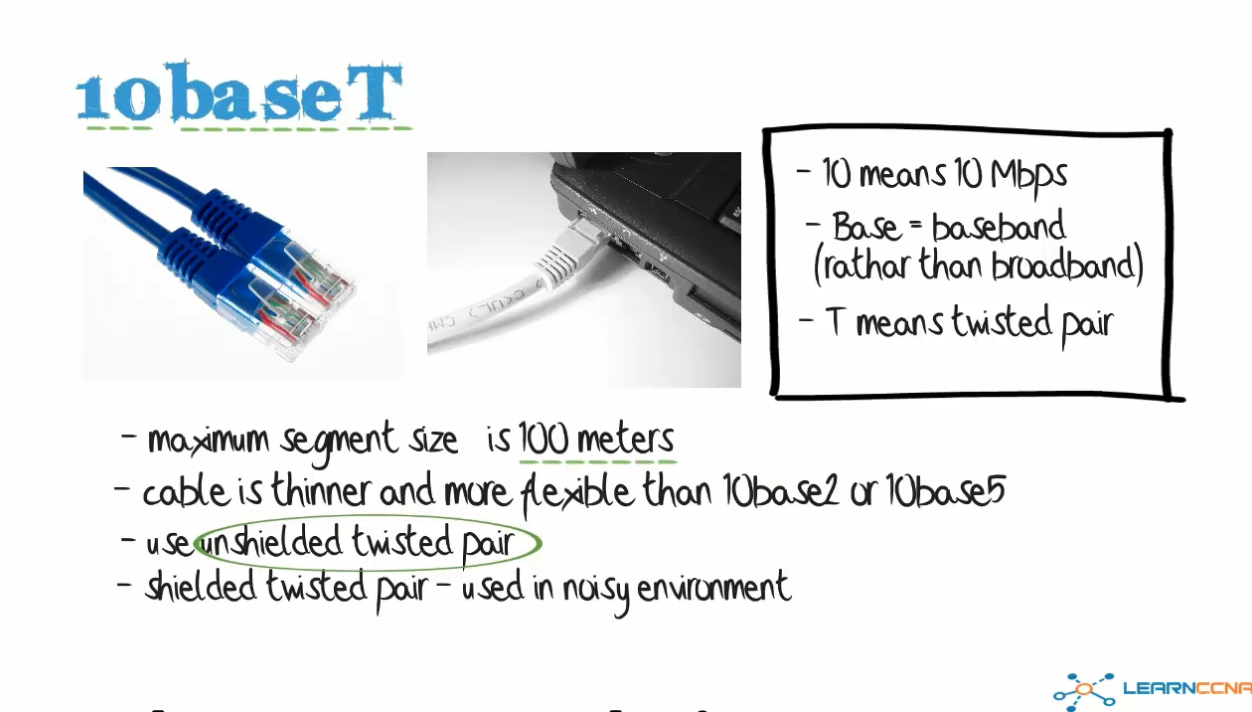 10baseT
- 10 means 10 Mbps
- Base = baseband
(rathar than broadband)
- T means twisted pair
- maximum segment size is 100 meters
- cable is thinner and more flexible than 10base2 or 10base5
- use unshielded twisted pair
- shielded twisted pair - used in noisy environment
LEARNCCNA